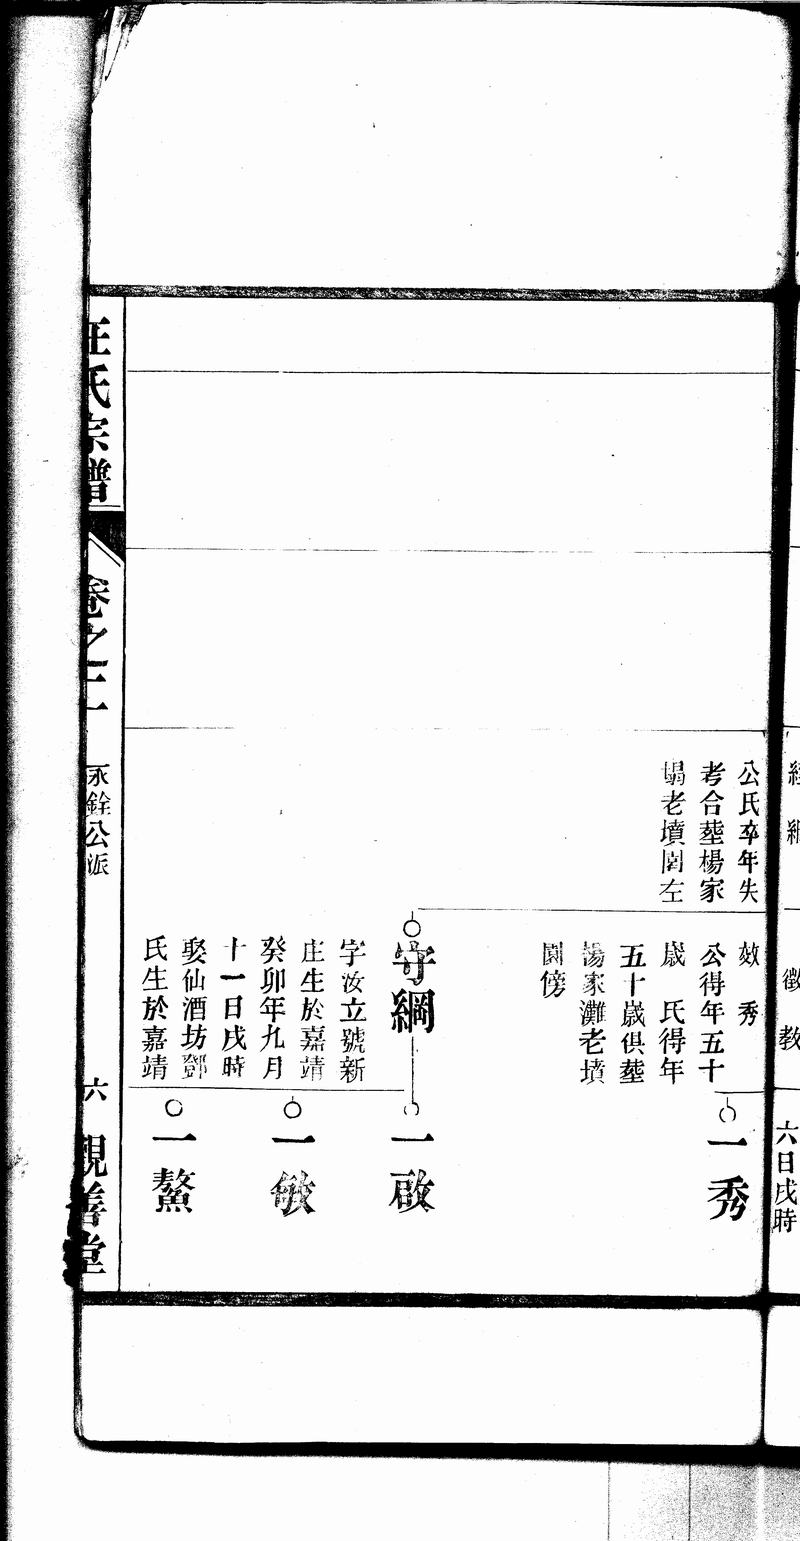 公氏卒年失
考合塟楊家
塌老墳園左
效秀
公得年五十
歲 氏得年
五十歲俱塟
楊家灘老墳
園傍
一秀
守綱
字汝立號新
庄生於嘉靖
癸卯年九月
十一日戌時
娶仙酒坊鄧
氏生於嘉靖
一啟
一敏
一鰲
汪氏宗譜
卷之二
永銓公派
六
親善堂
徵教
六日戌時